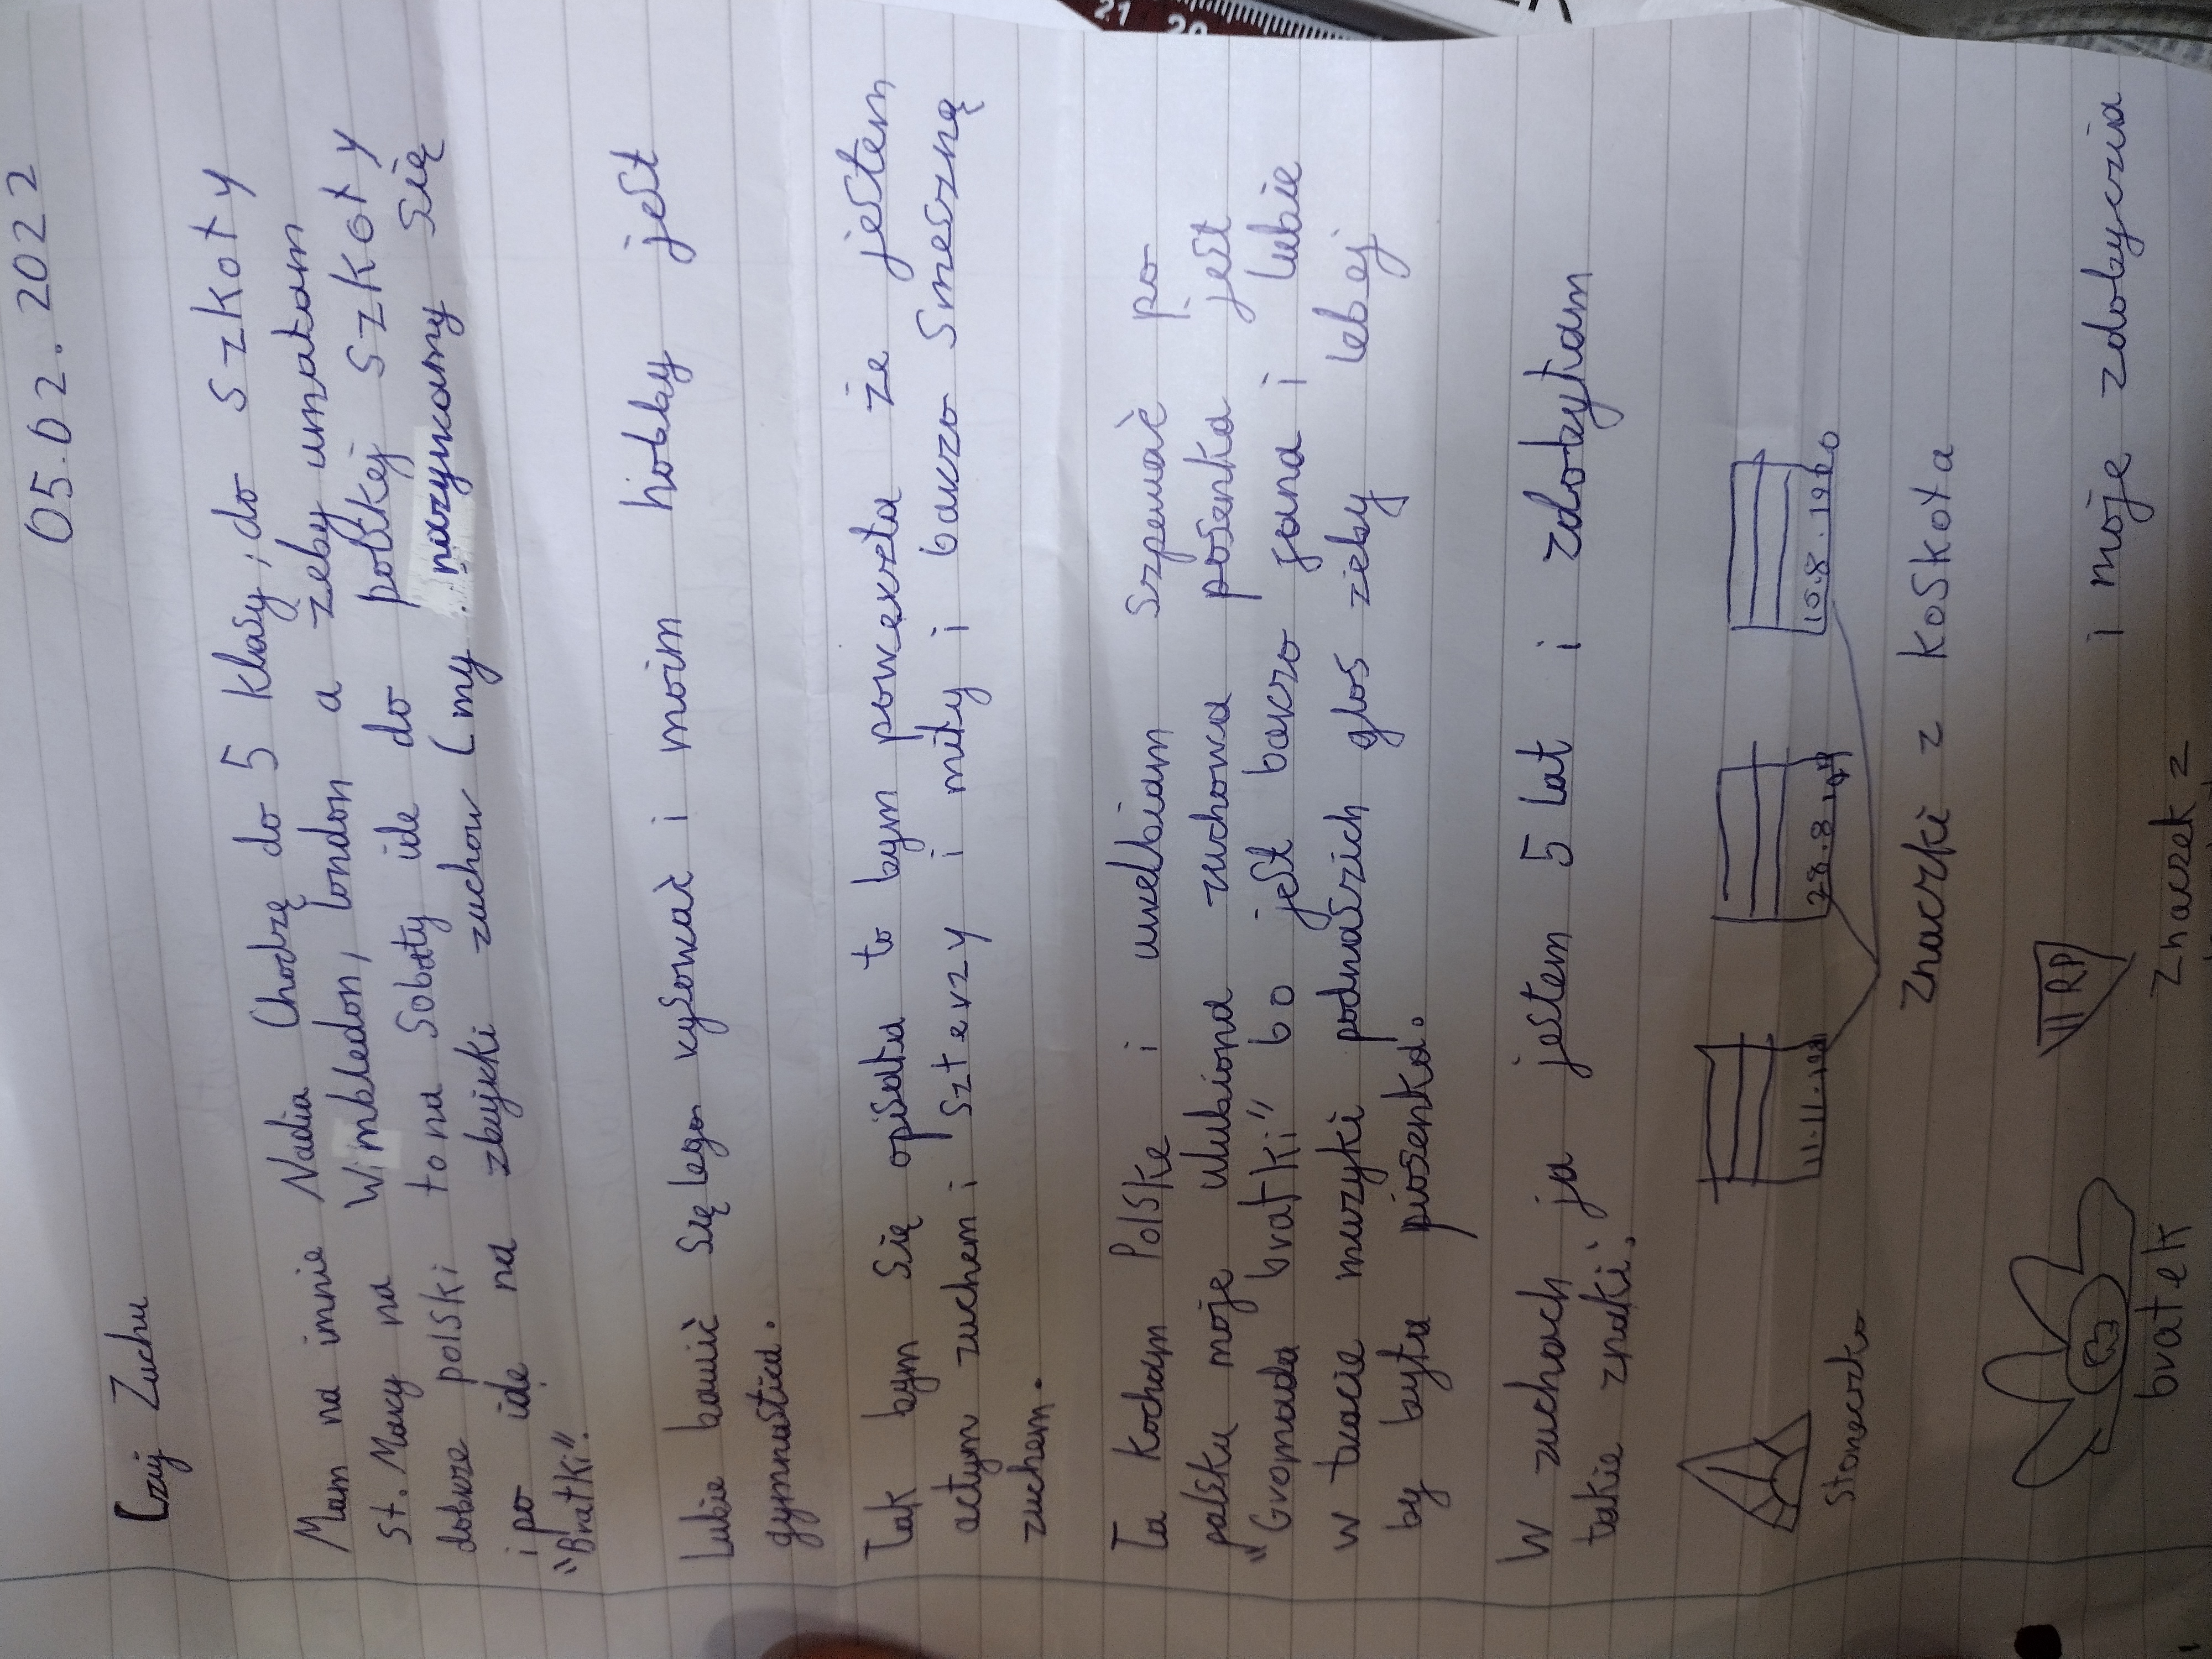 05.02.2022
Czuj Zuchu
Mam na imnie Nadia Chodzę do 5 klasy, do szkoty
St. Mary na Wimbledon, london a zeby umiatam
dobrze polski to na Sobaty ide do polskej szkoty
i po idę na zbiujki zuchow (my nazywamy się
"Bratki".
Lubie bawić się lego rysować i moim hobby jest
gymnastica.
Tak bym się opisata to bym powerzta że jestem
actym zuchem i szterzy i mity i barzo smeszną
zuchem.
Ta kocham Polske i uwelbiam szpewać po
palsku moje ulubiona zuchowa posenka jest
"Gromada bratki" bo jest barzo fana i lubie
w tracie muzyki podnaszich głos zieby lebej
by byta piosenka.
W zuchach ja jestem 5 lat i zdobytam
takie znaki.
11.11.198
28.8.19
10.8.1980
Stoneczko
Znaczki z koskota
RP
i moje zdobyczia
bratek
Znaczek z